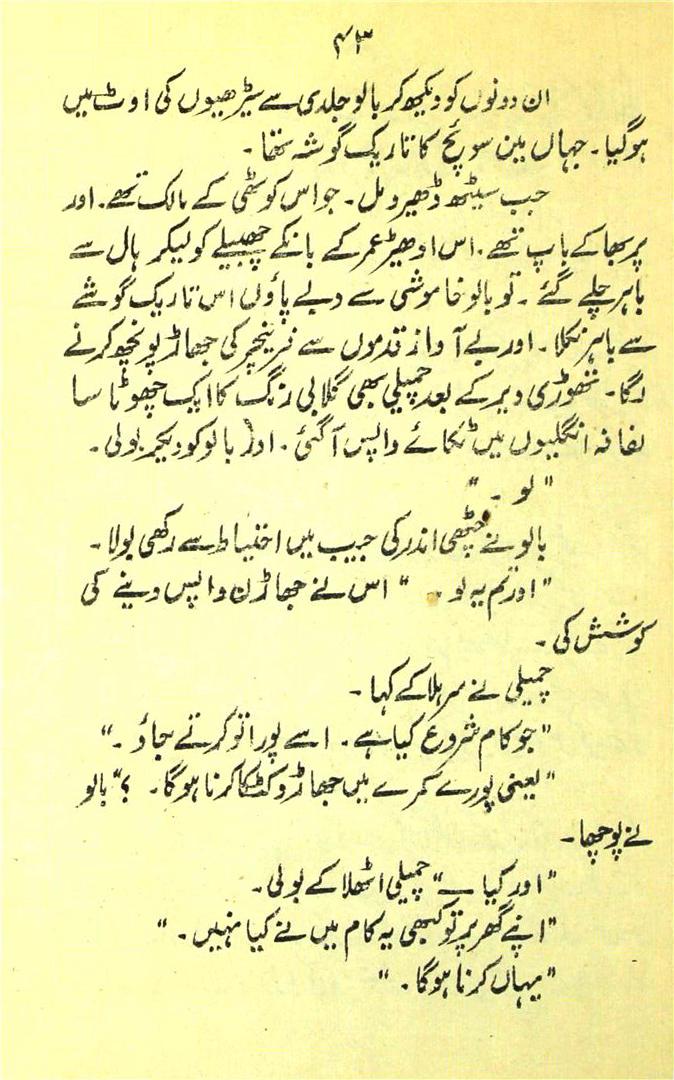 ۴۳
ان دونوں کو دیکھ کر بالو جلدی سے سیڑھیوں کی اوٹ میں
ہوگیا۔ جہاں مین سوئچ کا تاریک گوشہ تھا۔
جب سیٹھ ڈھیرومل۔ جو اس کوٹھی کے مالک تھے۔ اور
پربھا کے باپ تھے۔ اس ادھیڑ عمر کے بانکے چھبیلے کو لیکر ہال سے
باہر چلے گئے۔ تو بالو خاموشی سے دبے پاؤں اس تاریک گوشے
سے باہر نکلا۔ اور بے آواز قدموں سے فرنیچر کی جھاڑ پونچھ کرنے
لگا۔ تھوڑی دیر کے بعد چمیلی بھی گلابی رنگ کا ایک چھوٹا سا
لفافہ انگلیوں میں ٹکائے واپس آگئی۔ اور بالو کو دیکھ بولی۔
"لو۔"
بالو نے چٹھی اندر کی جیب میں احتیاط سے رکھی بولا۔
"اور تم یہ لو۔" اس نے جھاڑن واپس دینے کی
کوشش کی۔
چمیلی نے سر ہلا کے کہا۔
"جو کام شروع کیا ہے۔ اسے پورا تو کرتے جاؤ۔"
"یعنی پورے کمرے میں جھاڑو کٹکا کرنا ہوگا۔ ؟" بالو
نے پوچھا۔
"اور کیا ــ" چمیلی اٹھلا کے بولی۔
"اپنے گھر پر تو کبھی یہ کام میں نے کیا نہیں۔"
"یہاں کرنا ہوگا۔"